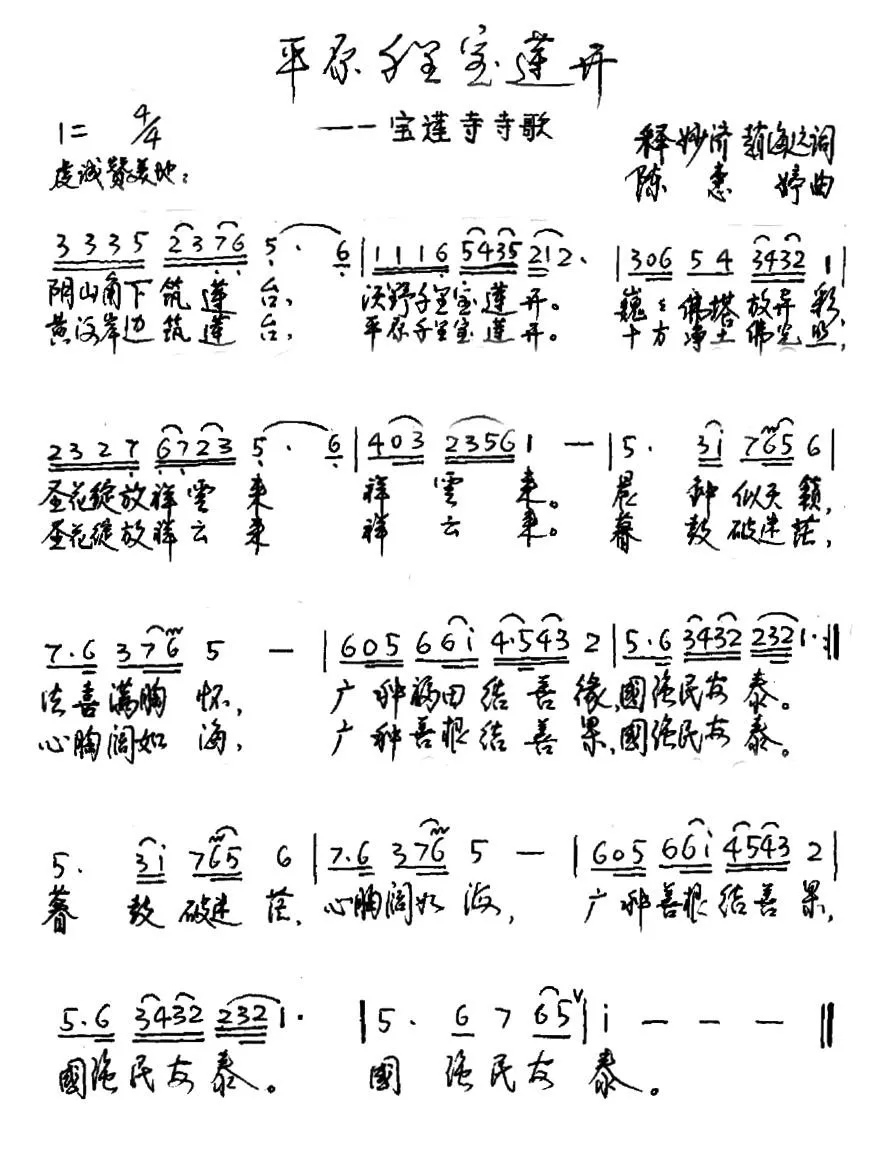 平原千里宝莲开
1= 4/4
——宝莲寺寺歌
虔诚赞美地：
释妙济 趙海边词
陈惠婷曲
3 3 3 5 2 3 7 6 5 · 6 | 1 1 1 6 5 4 3 5 2 1 2 · | 3 0 6 5 4 3 4 3 2 1 |
阴山角下筑莲台， 沃野千里宝莲开。 巍々佛塔放异彩，
黄河岸边筑莲台， 平原千里宝莲开。 十方净土佛光照，
2 3 2 7 6 7 2 3 5 · 6 | 4 0 3 2 3 5 6 1 — | 5 · 3 i 7 6 5 6 |
圣花绽放祥雲来 祥雲来。 晨钟似天籁，
圣花绽放祥云来 祥云来。 暮鼓破迷茫，
7 · 6 3 7 6 5 — | 6 0 5 6 6 i 4 · 5 4 3 2 | 5 · 6 3 4 3 2 2 3 2 1 · :||
法喜满胸怀， 广种福田结善缘，國强民安泰。
心胸阔如海， 广种善根结善果，國强民安泰。
5 · 3 i 7 6 5 6 | 7 · 6 3 7 6 5 — | 6 0 5 6 6 i 4 5 4 3 2 |
暮鼓破迷茫，心胸阔如海， 广种善根结善果，
5 · 6 3 4 3 2 2 3 2 1 · | 5 · 6 7 6 5 V | i — — — ||
國强民安泰。 國强民安泰。